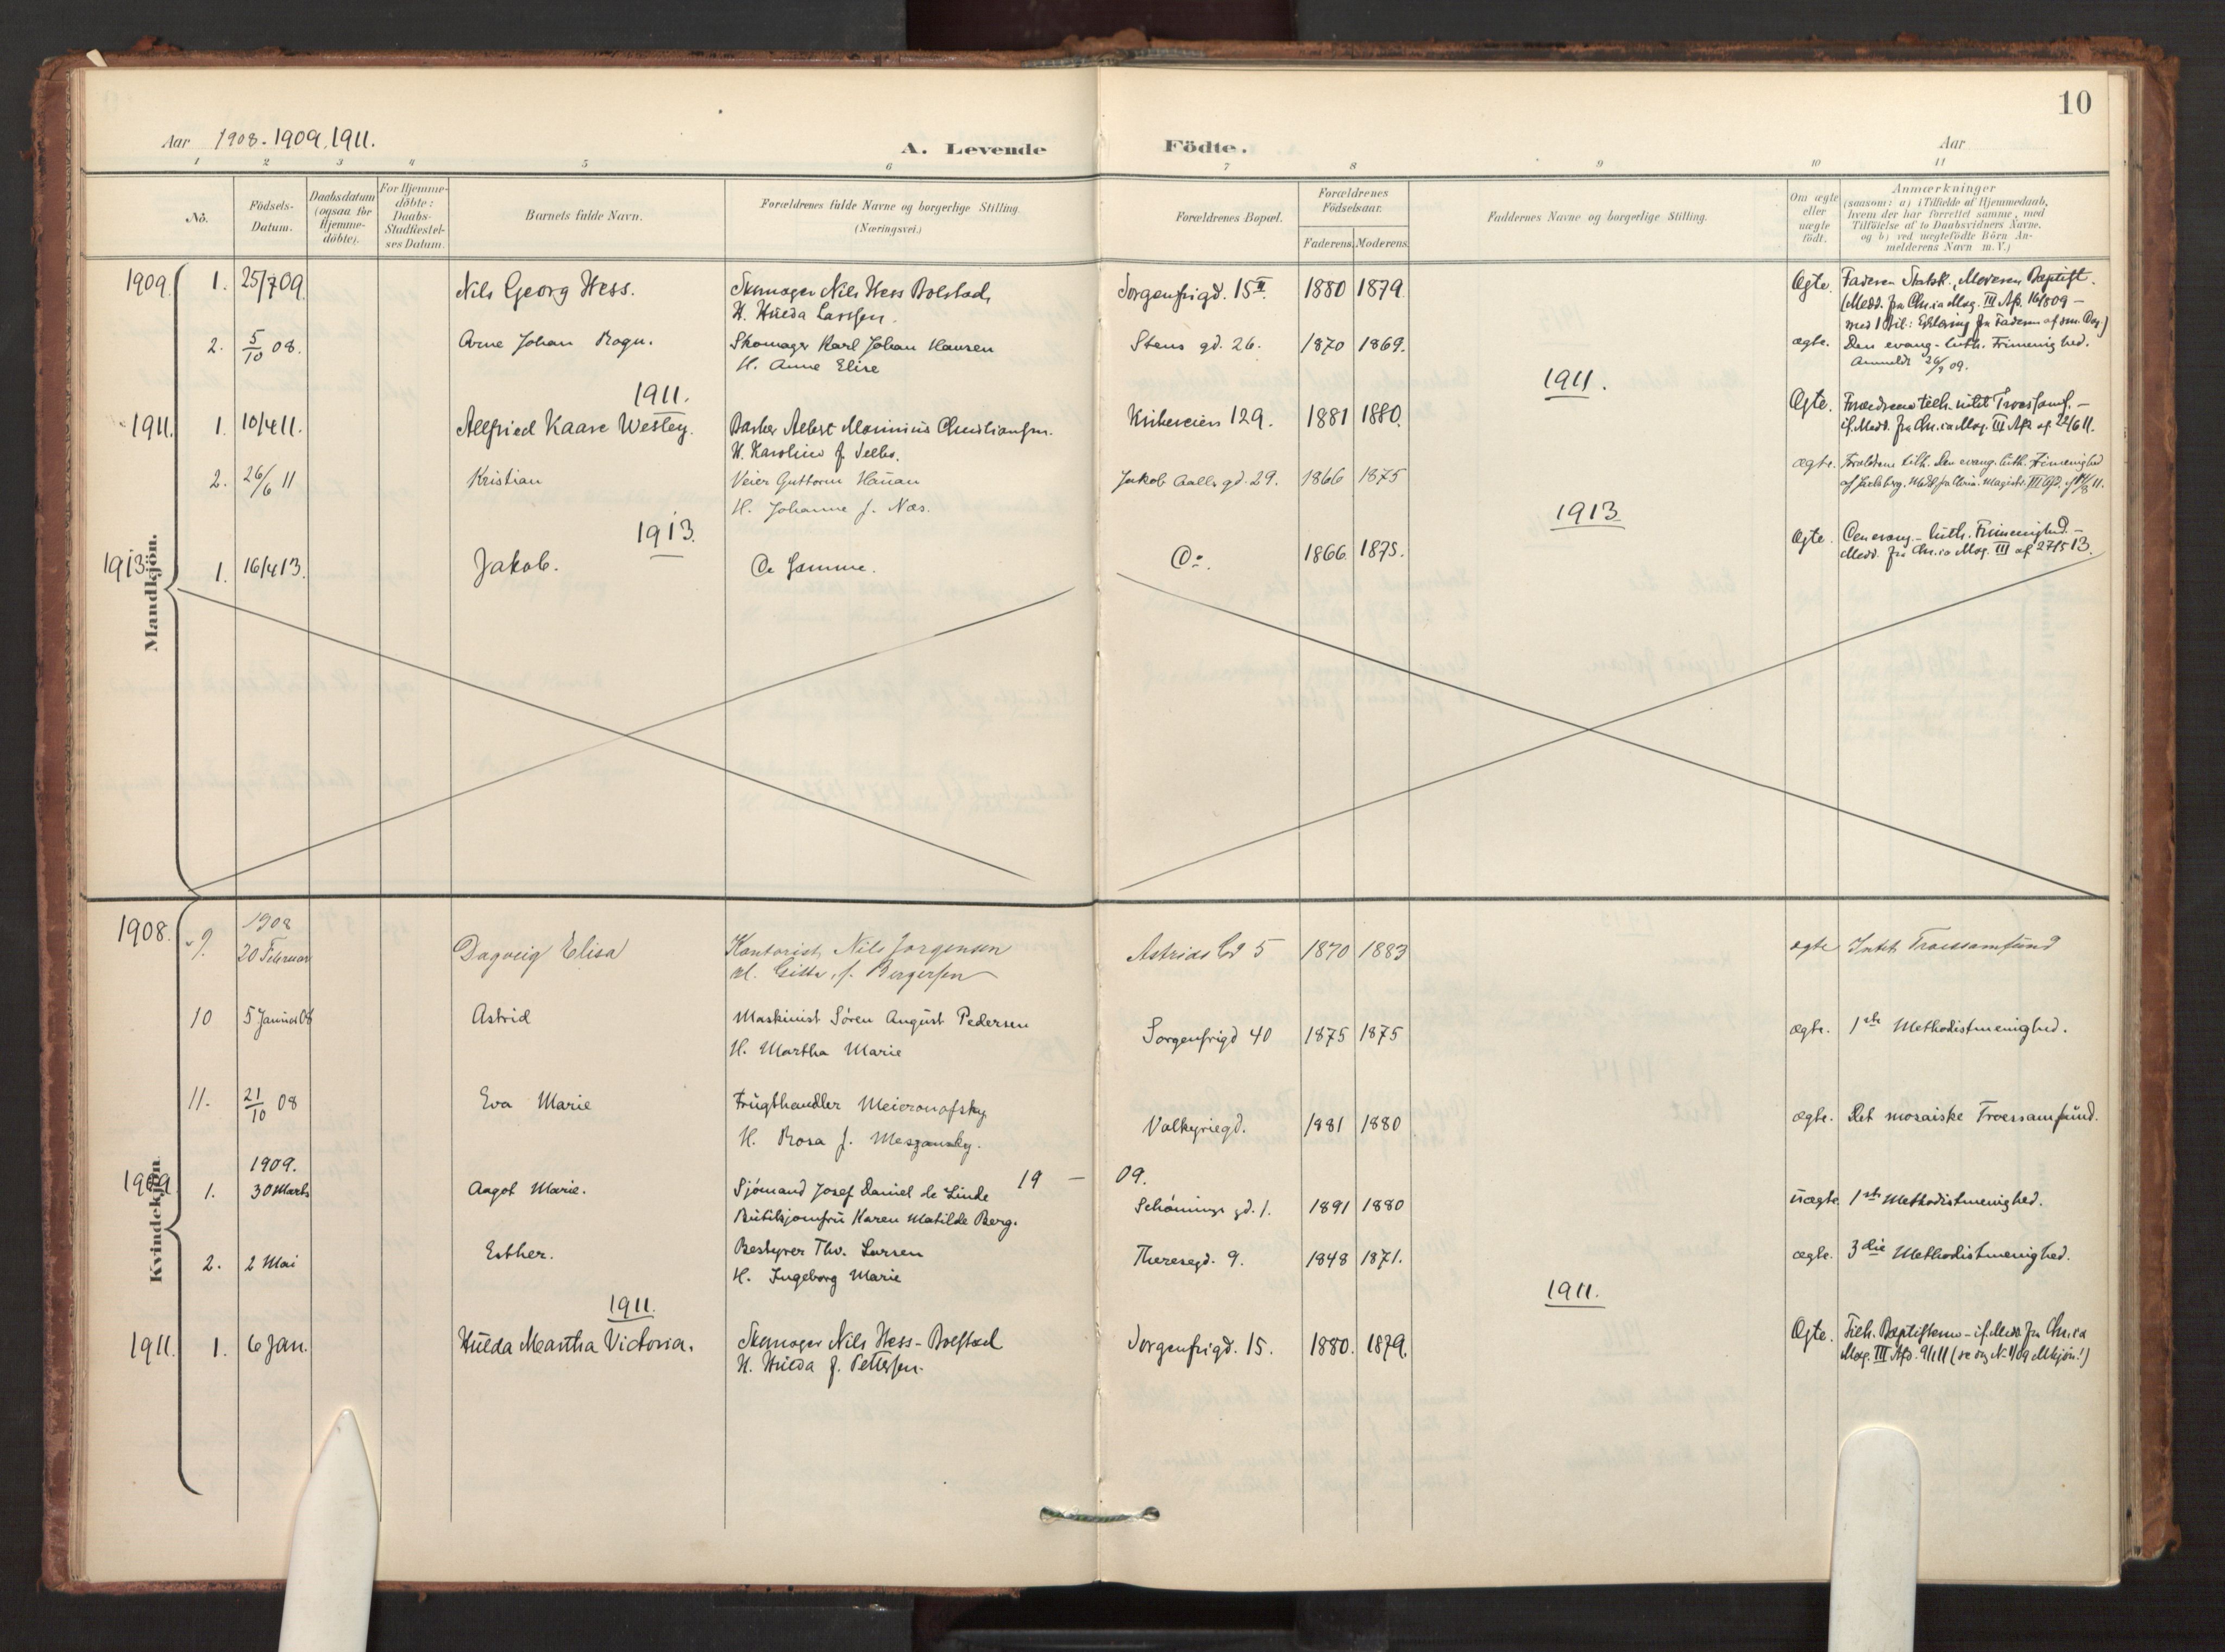 10
Aar 1908. 1909, 1911.
A. Levende
Födte.
Aar
1 2 3 4 5 6 7 8 9 10 11
No.
Födsels-Datum.
Daabsdatum (ogsaa for Hjemme-döbte).
For Hjemme-döbte: Daabs-Stadfestel-ses Datum.
Barnets fulde Navn.
Forældrenes fulde Navne og borgerlige Stilling.
(Næringsvei.)
Forældrenes Bopæl.
Forældrenes Födselsaar.
Faderens. Moderens.
Faddernes Navne og borgerlige Stilling.
Om ægte eller uægte födt.
Anmærkninger
(saasom: a) i Tilfælde af Hjemmedaab, hvem der har forrettet samme, med Tilföielse af to Daabsvidners Navne, og b) ved uægtefödte Börn An-melderens Navn m. V.)
Mandkjön.
1909. 1. 25/7 09. Nils Georg Hess. Skomager Nils Hess Bolstad, Sorgenfrigd. 15 II. 1880 1879. Ægte. Faderen Statsk., Moderen Baptist.
H. Hulda Larssen. (Medd. fra Chr.ia Mag. III Afd. 16/8 09 —
med 1 Bil.: Erklæring fra Faderen af sm. Dag.)
2. 5/10 08. Arne Johan Ragn. Skomager Karl Johan Hansen Stens gd. 26. 1870 1869. ægte. Den evang-luth. Frimenighed.
H. Anne Elise Anmeldt 09.
1911. 1911.
1911. 1. 10/4 11. Allfried Kaare Westley. Albert Marinius Christiansen. Kirkeveien 129. 1881 1880. Ægte. Forældrene tilh. intet Troessamf. —
H. Karoline f. if. Medd. fra Chr.ia Mag. III Afd. af 22/6 11.
2. 26/6 11 Kristian Veier Guttorm Hanan Jakob Aalls gd. 29. 1866 1875 ægte. Forældrene tilh. Den evang. luth. Frimenighed
H. Johanne f. Næs. Medd. fra Chria. Magistr. III Afd.
1913. 1913
1913. 1. 16/4 13. Jakob. De Samme. Do. 1866. 1875. Ægte. Den evang.-luth. Frimenighed. —
Medd. fra Chr.ia Mag. III af 27/5 13.
Kvindekjön.
1908. 9. 1908 20 Februar Dagveig Elisa Kontorist Nils Jorgensen Astrids Gd 5 1870 1883 ægte Intet Troessamfund
H. Gitta, f. Bergersen
10 5 Januar 08 Astrid Maskinist Sören August Pedersen Sorgenfrigd 40 1875 1875 ægte. 1ste Methodistmenighed.
H. Martha Marie
11. 21/10 08 Eva Marie Frugthandler Meieronofsky Valkyriegd. 1881 1880 ægte. Det mosaiske Troessamfund.
H. Rosa f. Meszansky.
1909. 19 — 09.
1909 1. 30 Marts Aagot Marie. Sjömand Josef Daniel de Linde Schönings gd. 1. 1891 1880 uægte. 1ste Methodistmenighed.
Butikjomfru Karen Matilde Berg.
2. 2 Mai Esther. Bestyrer Thv. Larsen Theresegd. 9. 1848 1871. ægte. 3die Methodistmenighed.
H. Ingeborg Marie
1911. 1911.
1911. 1. 6 Jan. Hulda Martha Victoria. Skomager Nils Hess-Bolstad Sorgenfrigd. 15. 1880. 1879. Ægte. Tilh. Baptisterne — if. Medd. fra Chr.ia
H. Hulda f. Pettersen. Mag. III Afd. 9/1 11 (se og No 1/09 Mkjön!)